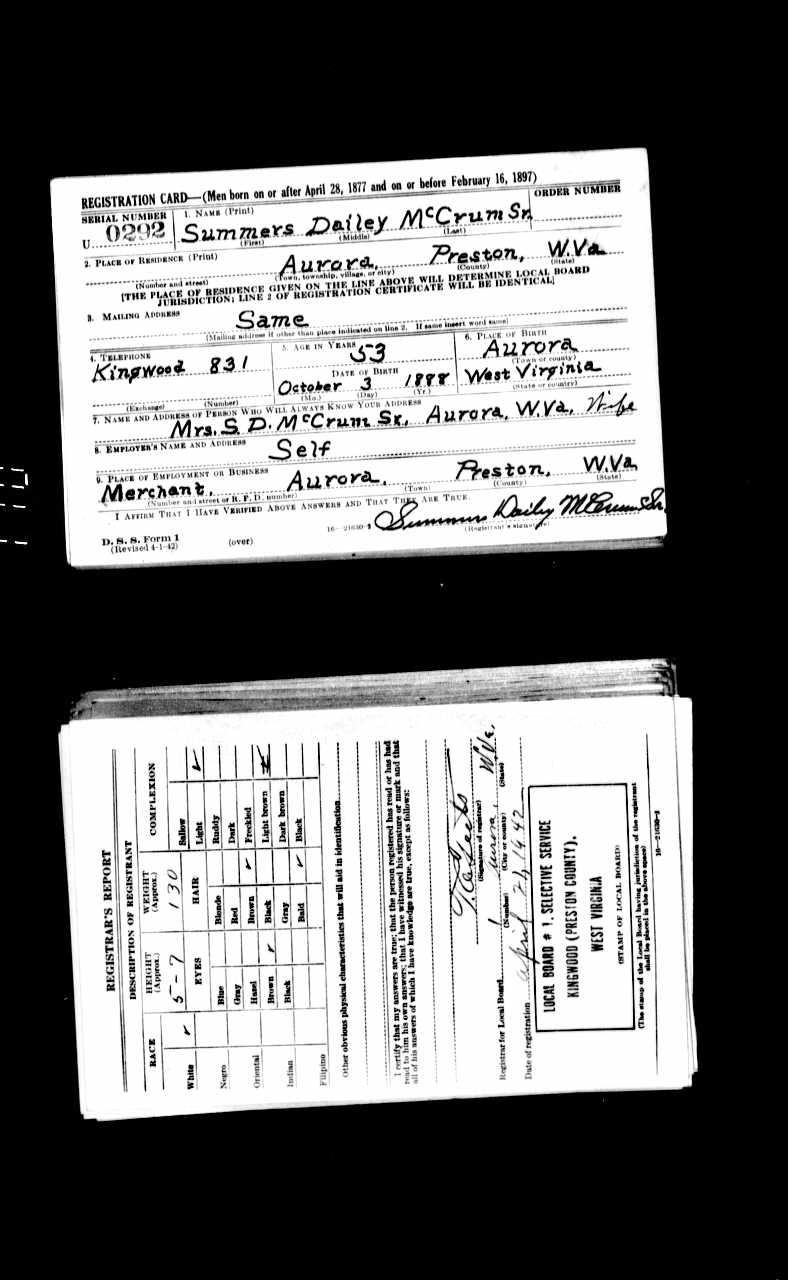 REGISTRATION CARD—(Men born on or after April 28, 1877 and on or before February 16, 1897)
SERIAL NUMBER 1. NAME (Print) ORDER NUMBER
U 0292 Summers Dailey McCrum Sr.
(First) (Middle) (Last)
2. PLACE OF RESIDENCE (Print)
Aurora, Preston, W.Va
(Number and street) (Town, township, village, or city) (County) (State)
[THE PLACE OF RESIDENCE GIVEN ON THE LINE ABOVE WILL DETERMINE LOCAL BOARD
JURISDICTION; LINE 2 OF REGISTRATION CERTIFICATE WILL BE IDENTICAL]
3. MAILING ADDRESS
Same
(Mailing address if other than place indicated on line 2. If same insert word same)
4. TELEPHONE 5. AGE IN YEARS 6. PLACE OF BIRTH
Kingwood 831 53 Aurora
DATE OF BIRTH (Town or county)
October 3 1888 West Virginia
(Exchange) (Number) (Mo.) (Day) (Yr.) (State or country)
7. NAME AND ADDRESS OF PERSON WHO WILL ALWAYS KNOW YOUR ADDRESS
Mrs. S. D. McCrum Sr., Aurora, W.Va, Wife
8. EMPLOYER'S NAME AND ADDRESS
Self
9. PLACE OF EMPLOYMENT OR BUSINESS
Merchant, Aurora, Preston, W.Va
(Number and street or R. F. D. number) (Town) (County) (State)
I AFFIRM THAT I HAVE VERIFIED ABOVE ANSWERS AND THAT THEY ARE TRUE.
Summers Dailey McCrum Sr.
D. S. S. Form 1 16—21630-2 (Registrant's signature)
(Revised 4-1-42) (over)
REGISTRAR'S REPORT
DESCRIPTION OF REGISTRANT
RACE HEIGHT (Approx.) WEIGHT (Approx.) COMPLEXION
5-7 130 Sallow
White ✓ EYES HAIR Light ✓
Blue Blonde Ruddy
Negro Gray Red Dark
Hazel Brown ✓ Freckled
Oriental Brown ✓ Black Light brown
Indian Black Gray Dark brown
Bald ✓ Black
Filipino
Other obvious physical characteristics that will aid in identification
I certify that my answers are true; that the person registered has read or has had
read to him his own answers; that I have witnessed his signature or mark and that
all of his answers of which I have knowledge are true, except as follows:
(Signature of registrar)
Registrar for Local Board 1 Aurora, W.Va.
(Number) (City or county) (State)
Date of registration April 1942
LOCAL BOARD # 1, SELECTIVE SERVICE
KINGWOOD (PRESTON COUNTY),
WEST VIRGINIA
(STAMP OF LOCAL BOARD)
(The stamp of the Local Board having jurisdiction of the registrant
shall be placed in the above space)
16—21630-2